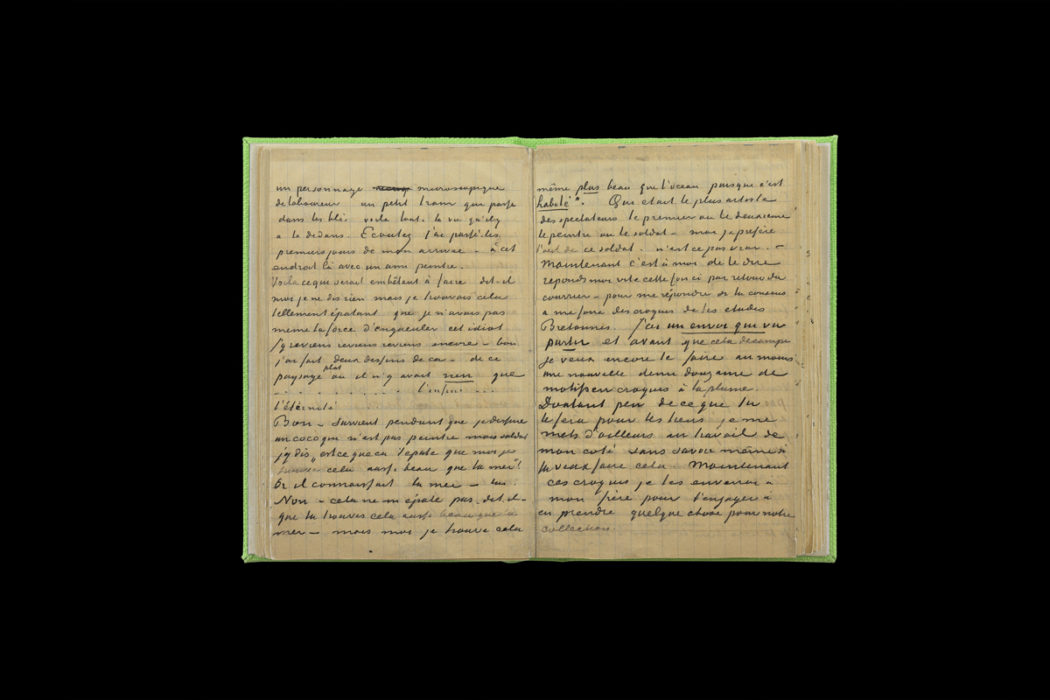 un personnage microscopique
de laboureur un petit train qui passe
dans les blés voilà tout la vie qu'il y
a là dedans. Ecoutez j'ai passé les
premiers jours de mon arrivée – à cet
endroit là avec un ami peintre.
Voilà ce que serait embêtant à faire dit-il
moi je ne dis rien mais je trouvais cela
tellement épatant que je n'avais pas
même la force d'engueuler cet idiot
j'y reviens reviens reviens encore – bon
j'ai fait deux dessins de ça – de ce
paysage plat où il n'y avait rien que
. . . . l'infini . . .
l'éternité
Bon – survient pendant que je dessine
un coco qui n'est pas peintre mais soldat
j'y dis, est ce que ça t'épate que moi je
trouve cela aussi beau que la mer"
Or il connaissait la mer – lui.
Non – cela ne m'épate pas – dit-il –
que tu trouves cela aussi beau que la
mer – mais moi je trouve cela
même plus beau que l'océan puisque c'est
habité".. Qui était le plus artiste
des spectateurs le premier ou le deuxième
le peintre ou le soldat – moi je préfère
l'œil de ce soldat. n'est ce pas vrai. –
Maintenant c'est à moi de te dire
réponds moi vite cette fois ci par retour du
courrier – pour me répondre si tu consens
à me faire des croquis de tes études
Bretonnes. J'ai un envoi qui va
partir et avant que cela décampe
je veux encore te faire au moins
une nouvelle demi douzaine de
motifs en croquis à la plume.
Doutant peu de ce que tu
le feras pour les tiens je me
mets d'ailleurs au travail de
mon côté sans savoir même si
tu veux faire cela. Maintenant
ces croquis je les enverrai à
mon frère pour l'engager à
en prendre quelque chose pour notre
collection.